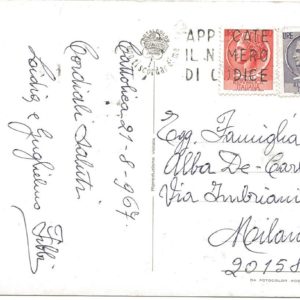 Cattolica 21-8-967
Cordiali saluti
Lidia e Guglielmo
APPLICATE
IL NUMERO
DI CODICE
Egg. Famiglia
Alba De-Car
Via Imbriani
Milan
20158